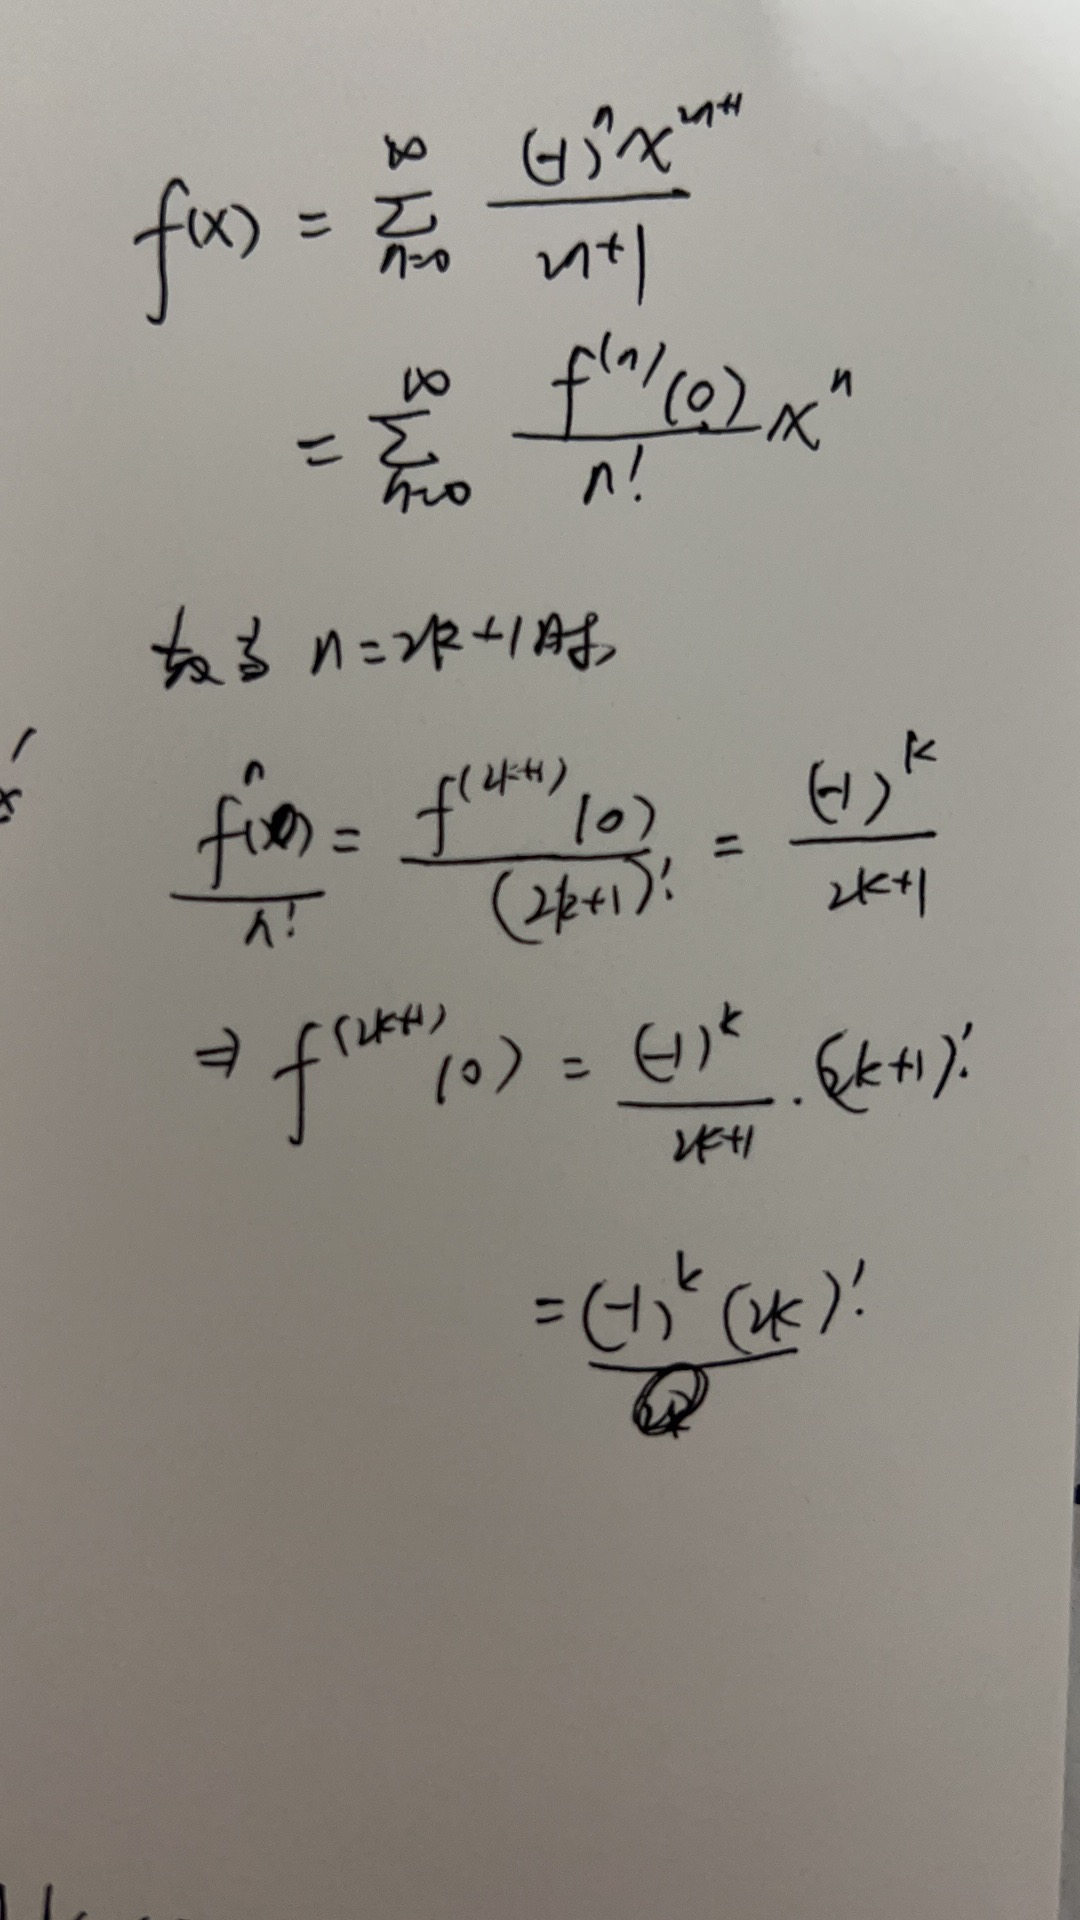 f(x) = ∑_{n=0}^{∞} \frac{(-1)^n x^{2n+1}}{2n+1}
= ∑_{n=0}^{∞} \frac{f^{(n)}(0)}{n!} x^n
故当 n=2k+1时,
\frac{f^{n}(0)}{n!} = \frac{f^{(2k+1)}(0)}{(2k+1)!} = \frac{(-1)^k}{2k+1}
⇒ f^{(2k+1)}(0) = \frac{(-1)^k}{2k+1} · (2k+1)!
= (-1)^k (2k)!